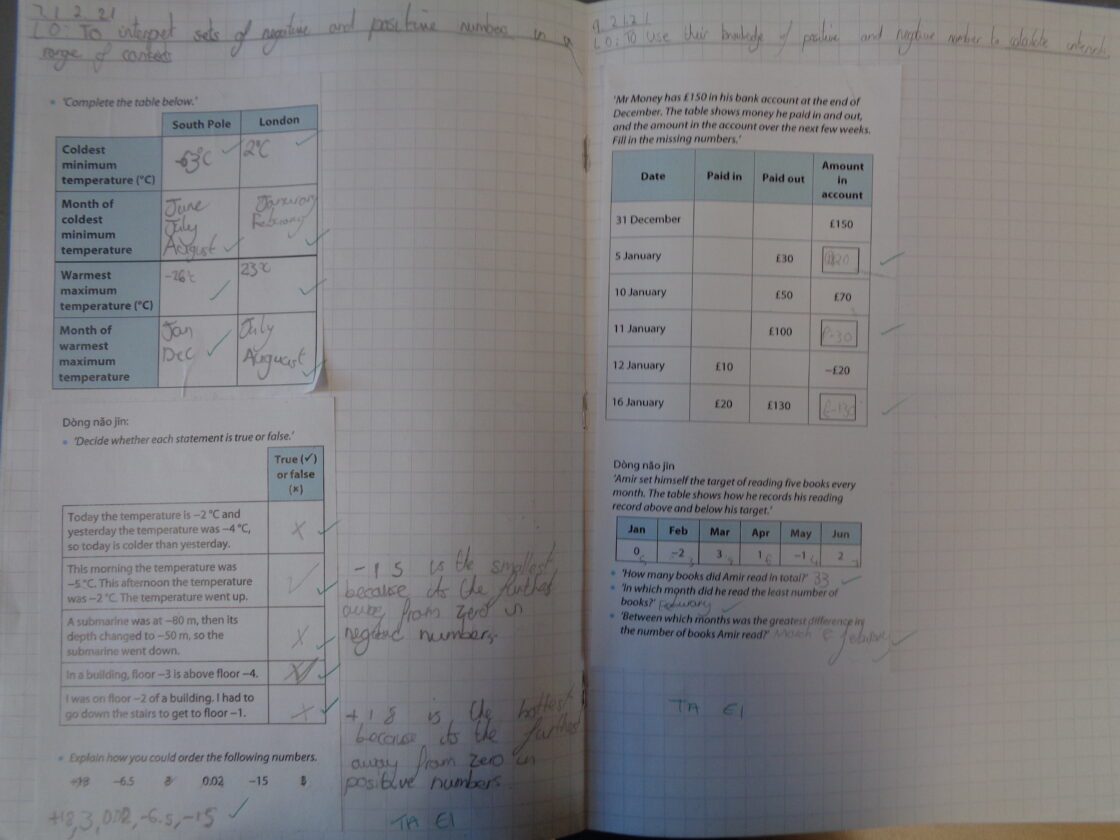 7. 1. 2. 21
LO: To interpret sets of negative and positive numbers in a
range of contexts
• 'Complete the table below.'
South Pole London
Coldest minimum temperature (°C) -63°C 2°C
Month of coldest minimum temperature June July August January Febuary
Warmest maximum temperature (°C) -26°C 23°C
Month of warmest maximum temperature Jan Dec July Augucist
Dòng nǎo jīn:
• 'Decide whether each statement is true or false.'
True (✓)
or false
(×)
Today the temperature is −2 °C and
yesterday the temperature was −4 °C,
so today is colder than yesterday. ×
This morning the temperature was
−5 °C. This afternoon the temperature
was −2 °C. The temperature went up. ✓
A submarine was at −80 m, then its
depth changed to −50 m, so the
submarine went down. ×
In a building, floor −3 is above floor −4.
I was on floor −2 of a building. I had to
go down the stairs to get to floor −1. ×
• Explain how you could order the following numbers.
+18 −6.5 3 0.02 −15
+18, 3, 0.02, -6.5, -15
-15 is the smallest
because its the furthest
away from zero in
negative numbers.
+18 is the hottest
because its the furthest
away from zero in
positive numbers
TA E1
9. 2. 21
LO: To use their knowledge of positive and negative number to calculate intervals
'Mr Money has £150 in his bank account at the end of
December. The table shows money he paid in and out,
and the amount in the account over the next few weeks.
Fill in the missing numbers.'
Date Paid in Paid out Amount in account
31 December £150
5 January £30 120
10 January £50 £70
11 January £100 £-30
12 January £10 −£20
16 January £20 £130 £-130
Dòng nǎo jīn
'Amir set himself the target of reading five books every
month. The table shows how he records his reading
record above and below his target.'
Jan Feb Mar Apr May Jun
0 −2 3 1 −1 2
• 'How many books did Amir read in total?' 33
• 'In which month did he read the least number of
books?' Febuary
• 'Between which months was the greatest difference in
the number of books Amir read?' March & febuary
TA E1